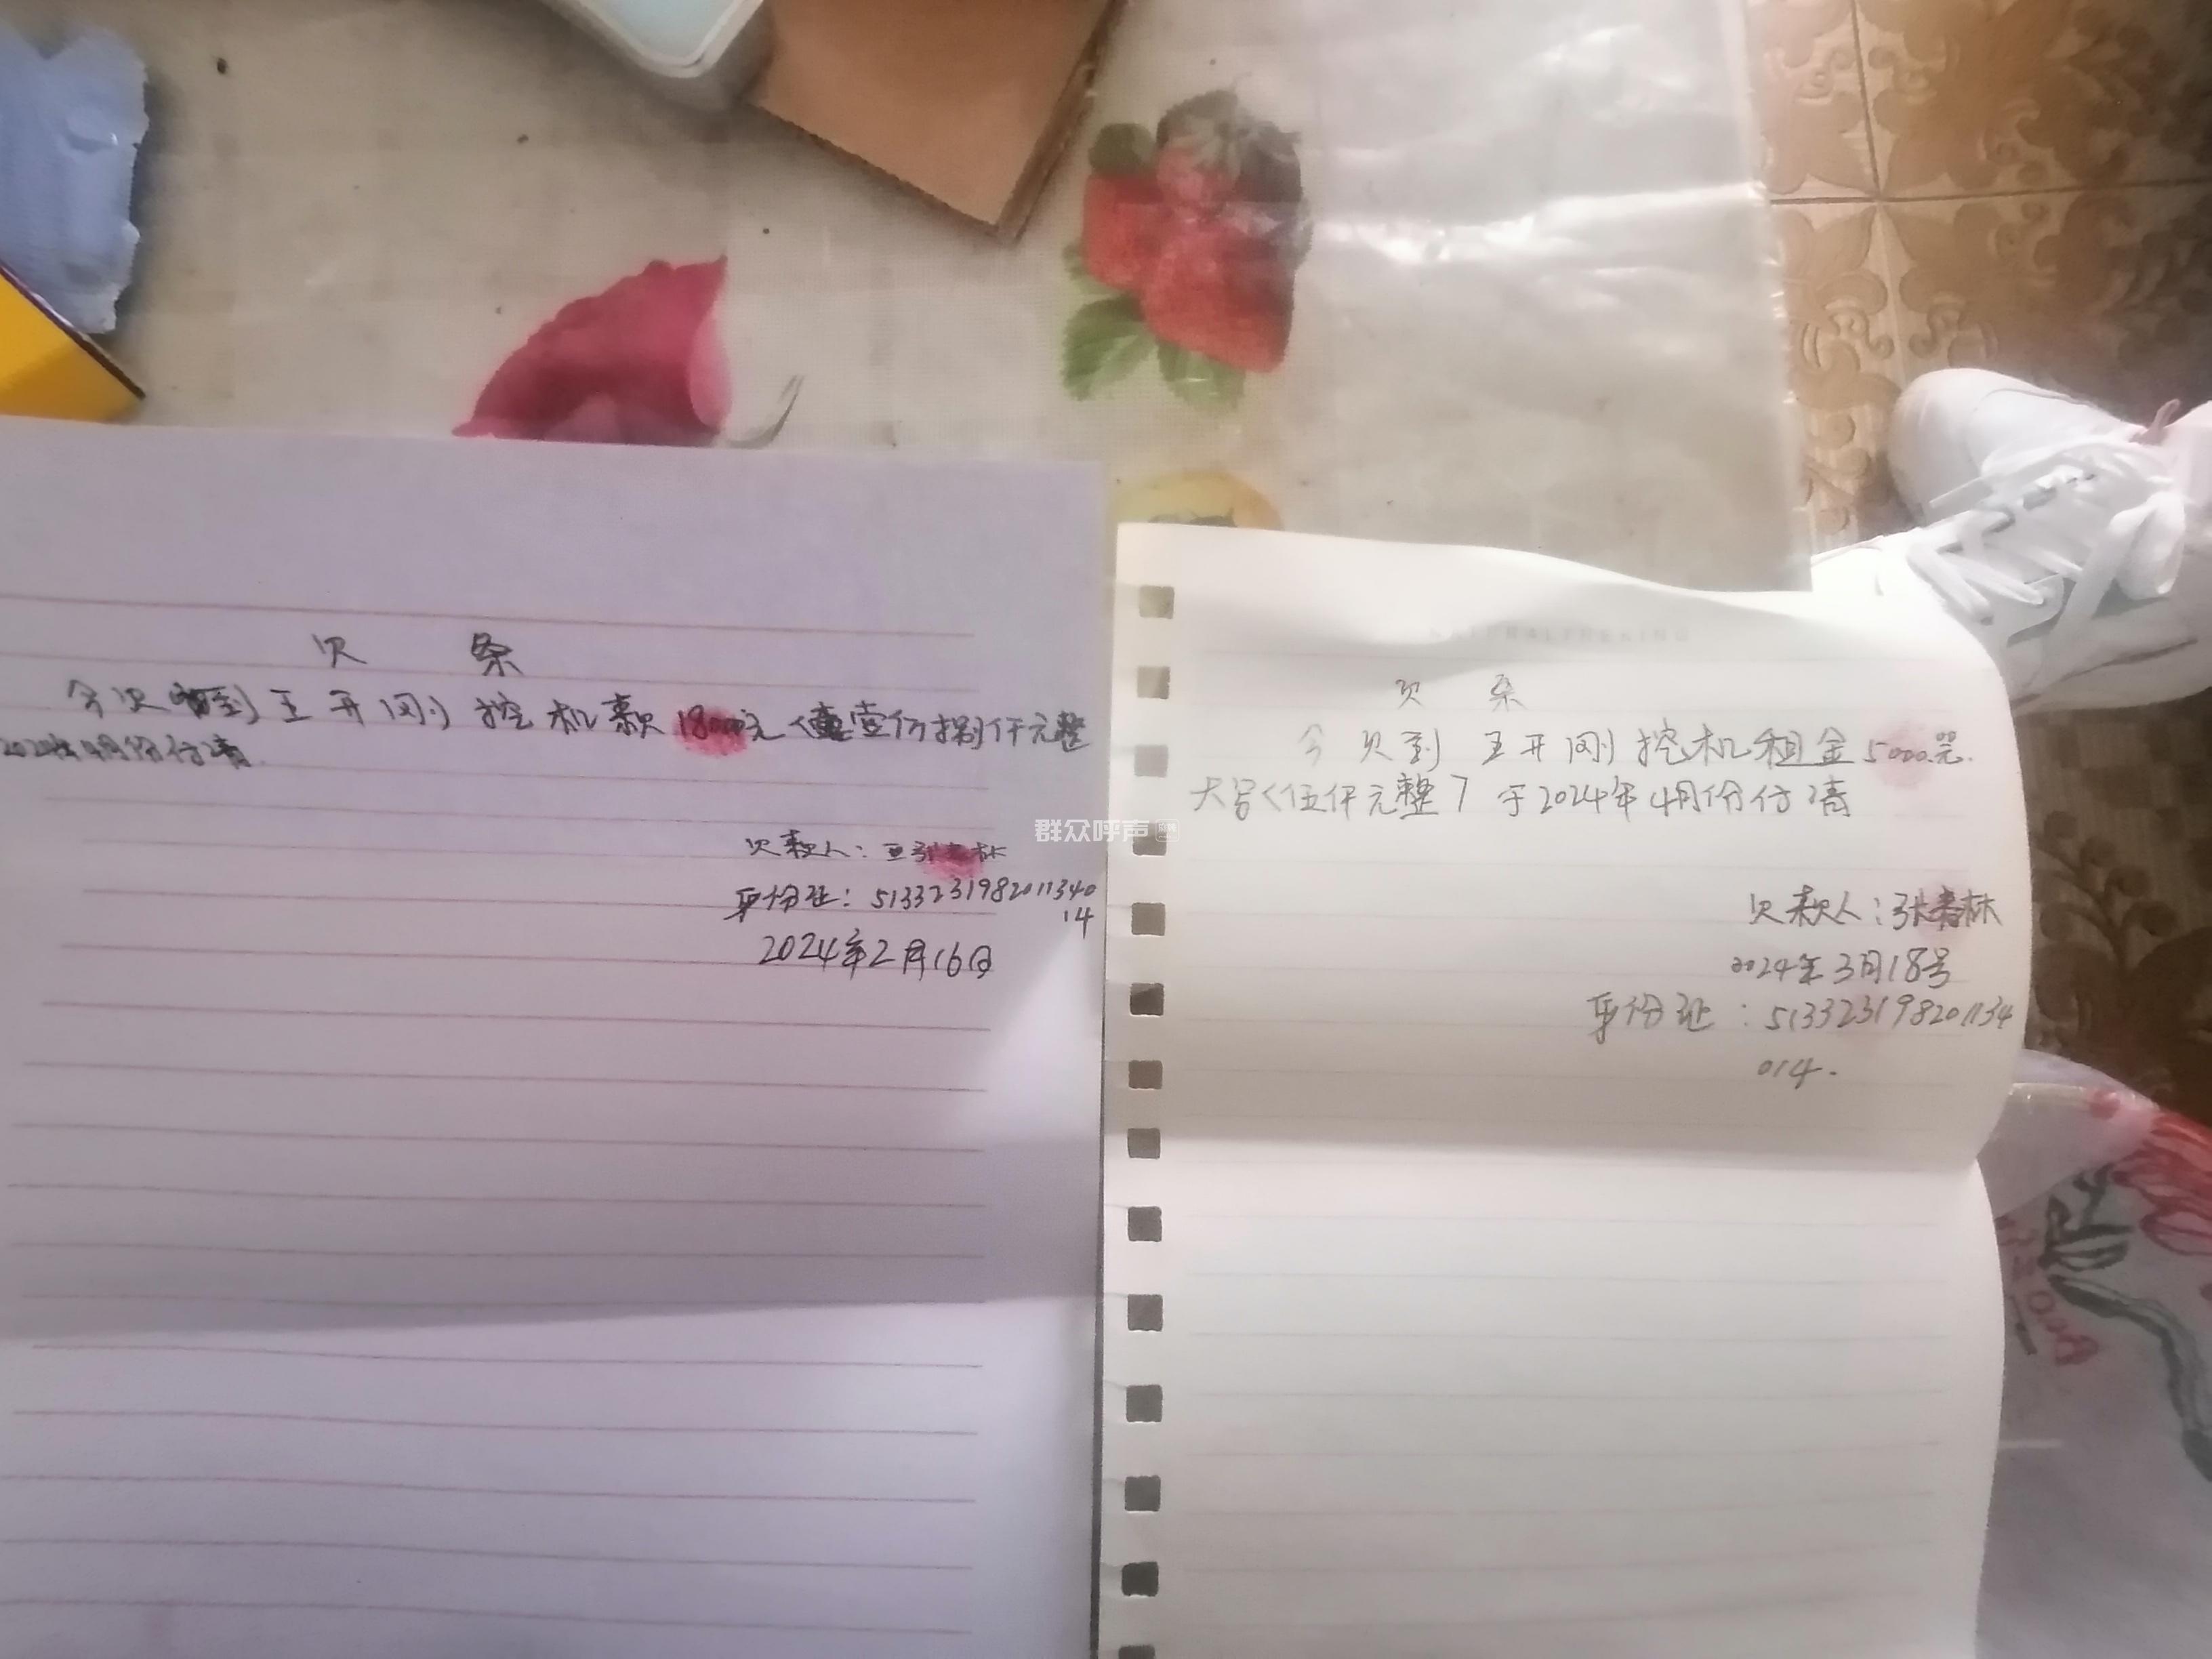 欠 条
今欠到王开刚挖机款18000元(壹仟捌仟元整
2024年4月份付清.
欠款人: 张春林
身份证: 5133231982011340
14
2024年2月16日
群众呼声
欠 条
今欠到 王开刚挖机租金5000元.
大写<伍仟元整7 于2024年4月份付清
欠款人:张春林
2024年3月18号
身份证:513323198201134
014.